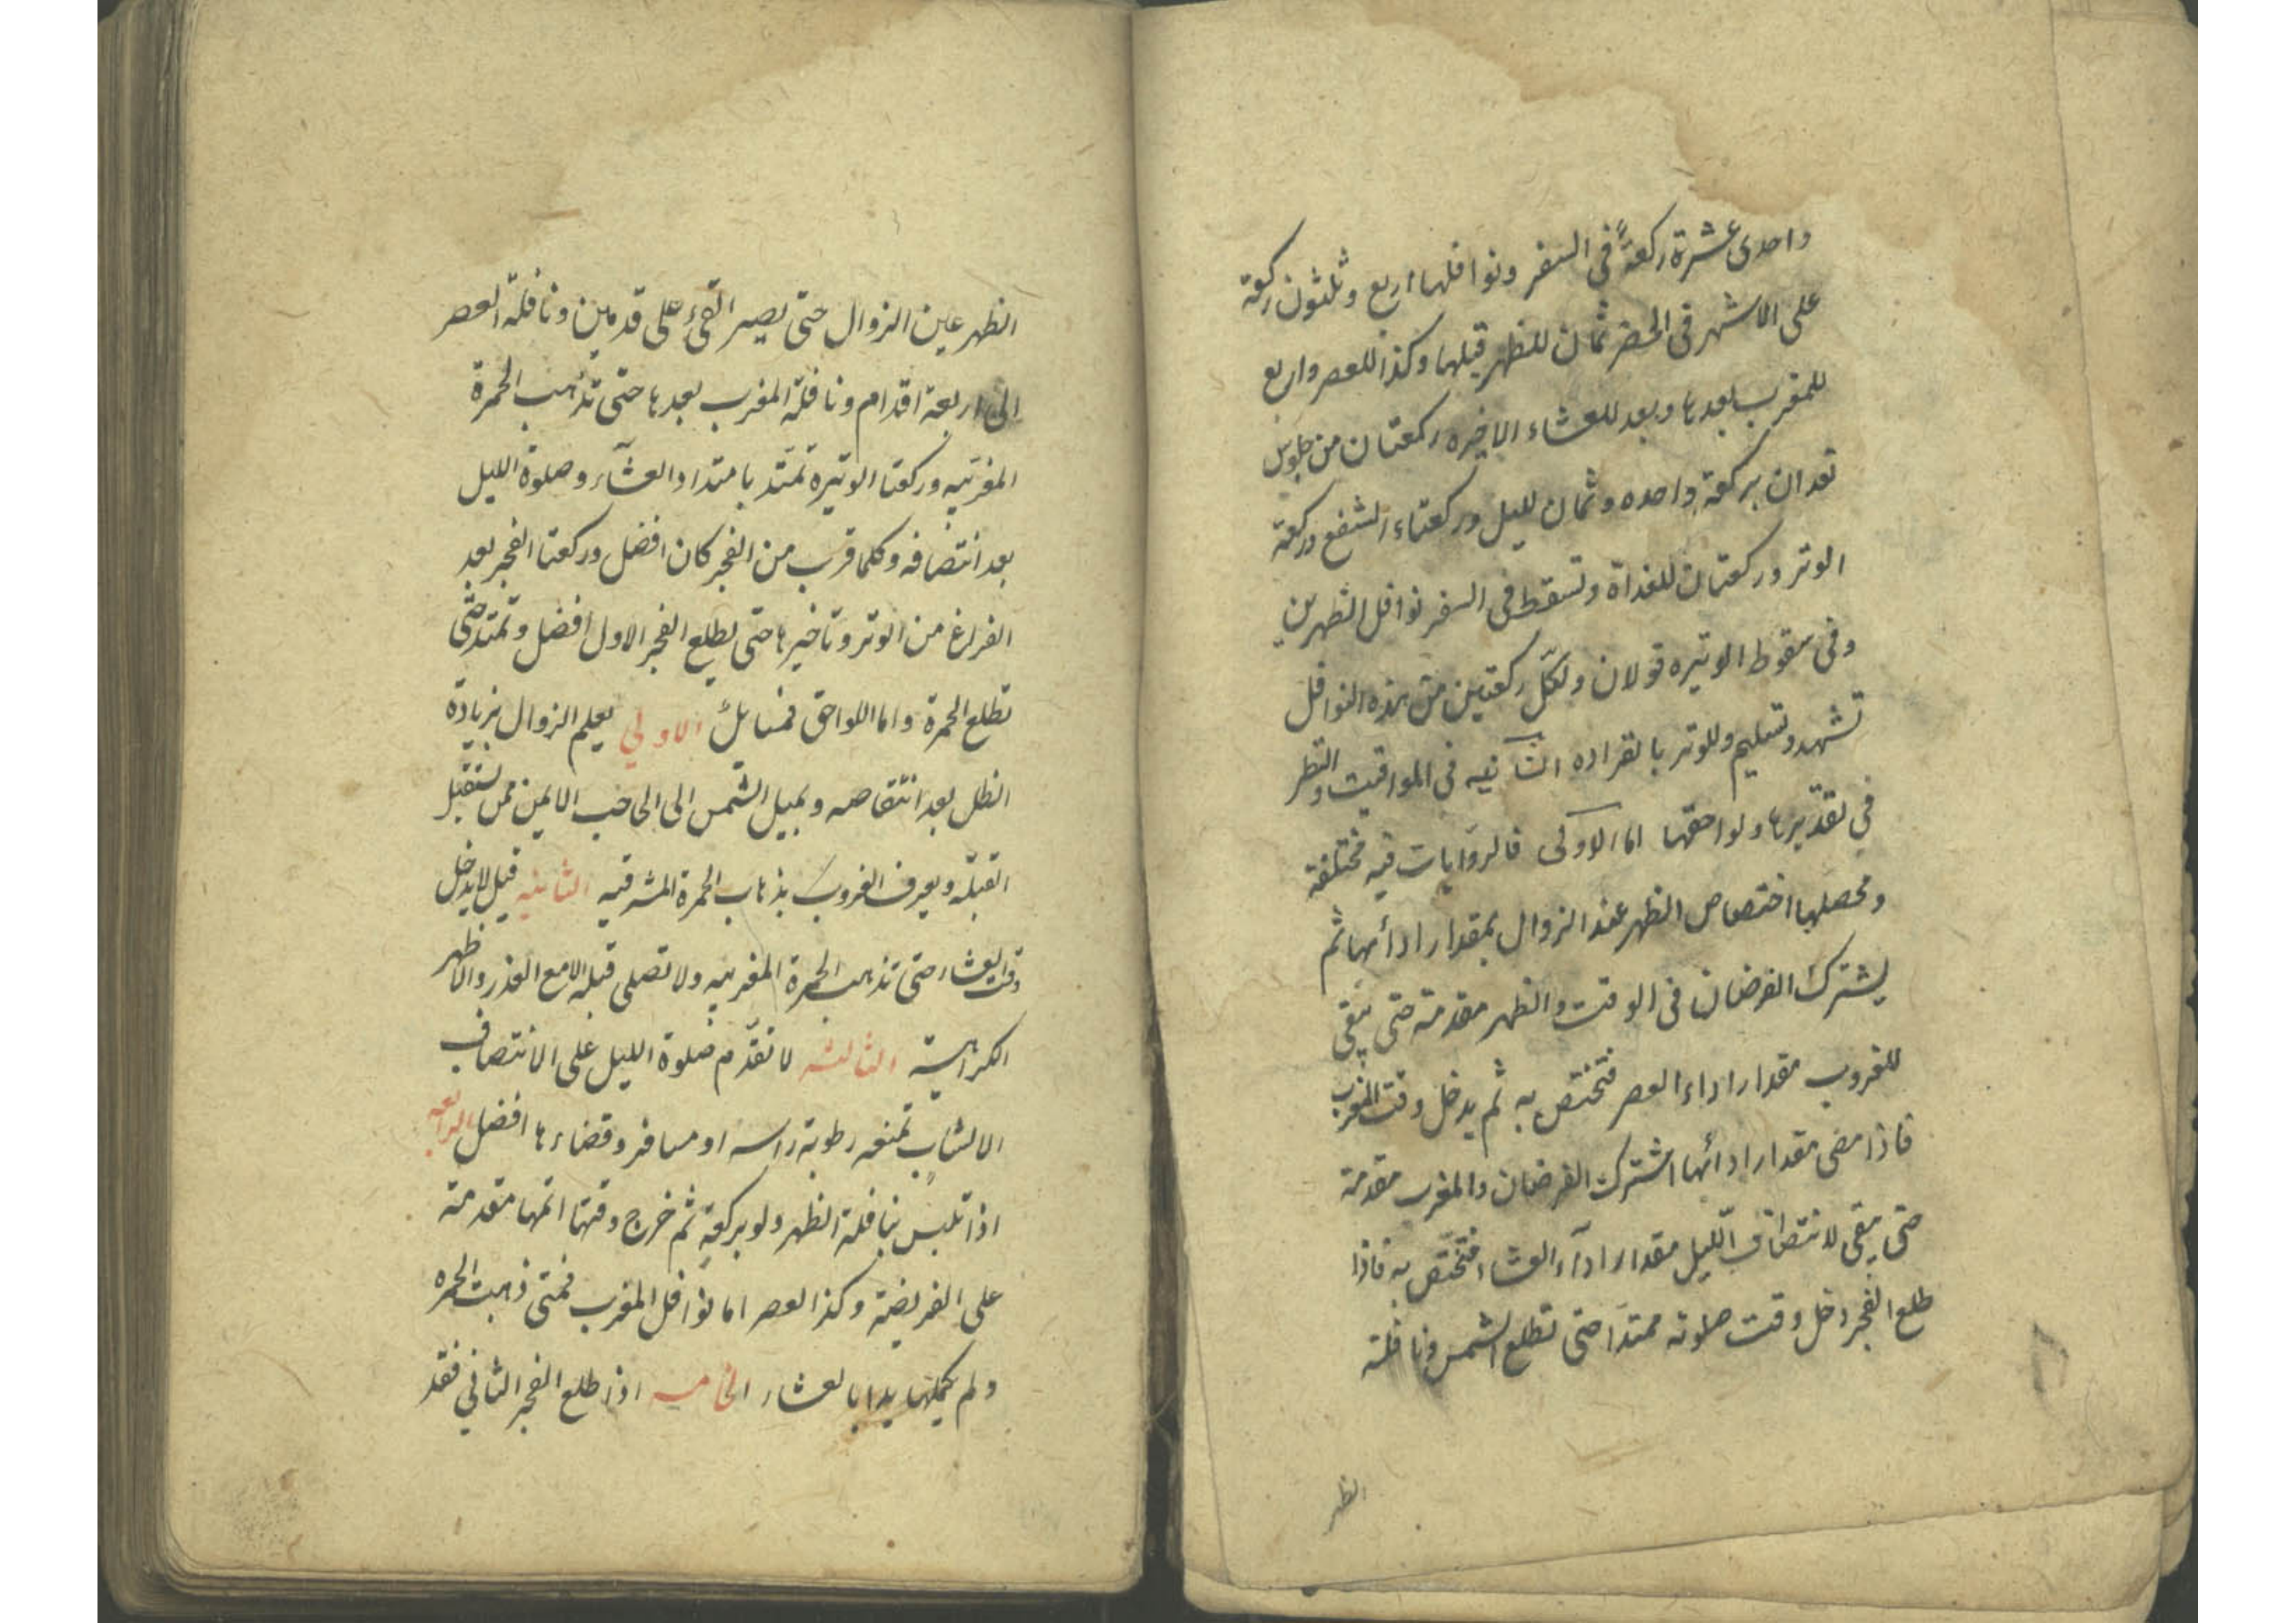 واحدی عشرة ركعةً فی السفر ونوافلها اربع وثلثون ركعة
علی الاشهر فی الحضر ثمان للظهر قبلها وكذا للعصر واربع
للمغرب بعدها وبعد للعشاء الاخیره ركعتان من جلوس
تعدان بركعة واحده وثمان للیل وركعتاء الشفع وركعة
الوتر وركعتان للغداة وتسقط فی السفر نوافل الظهرین
وفی سقوط الوتیره قولان ولكلّ ركعتین من هذه النوافل
تشهد وتسلیم وللوتر بانفراده الثانیه فی المواقیت والنظر
فی تقدیرها ولواحقها اما الاولی فالروایات فیه مختلفة
ومحصلها اختصاص الظهر عند الزوال بمقدار ادائها ثم
یشترك الفرضان فی الوقت والظهر مقدمة حتی یبقی
للغروب مقدار اداء العصر فتختص به ثم یدخل وقت المغرب
فاذا مضی مقدار ادائها اشترك الفرضان والمغرب مقدمة
حتی یبقی لانتصاف اللّیل مقدار اداء العشاء فتختّص به فاذا
طلع الفجر دخل وقت صلوته ممتدّا حتی تطلع الشمس ونافلة
الظهر
الظهر عین الزوال حتی یصیر الفیء علی قدمین ونافلة العصر
الی اربعة اقدام ونافلة المغرب بعدها حتی تذهب الحمرة
المغربیه وركعتا الوتیره تمتّد بامتداد العشآء وصلوة اللیل
بعد انتصافه وكلما قرب من الفجر كان افضل وركعتا الفجر بعد
الفراغ من الوتر وتاخیرها حتی یطلع الفجر الاول افضل وتمتد حتّی
تطلع الحمرة واما اللواحق فمسایلُ الاولی یعلم الزوال بزیادة
الظل بعد انتقاصه وبمیل الشمس الی الحاجب الایمن ممن یستقبل
القبلّه ویعرف الغروب بذهاب الحمرة المشرقیه الثانیه قیل لا یدخل
وقت العشاء حتی تذهب الحمرة المغربیه ولا تصلی قبله الا مع العذر والاظهر
الكراهیة الثالثه لا تقدّم صلوة اللیل علی الانتصاف
الا لشاب تمنعه رطوبة راسه او مسافر وقضاءها افضل الرابعه
اذا تلبس بنافلة الظهر ولو بركعةٍ ثم خرج وقتها اتمها متقدمة
علی الفریضة وكذا العصر اما نوافل المغرب فمتی ذهبت الحمره
ولم یكملها بدا بالعشاء الخامسه اذا طلع الفجر الثانی فقد